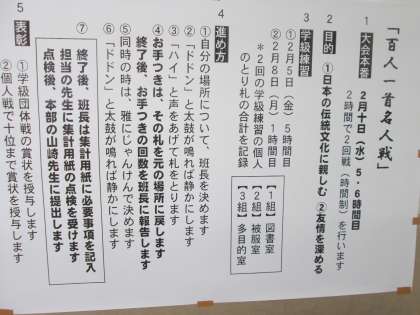 「百人一首名人戦」
1 大会本番 2月10日(水)5・6時間目
2時間で2回戦(時間制)を行います
2 目的 ①日本の伝統文化に親しむ ②友情を深める
3 学級練習
①2月5日(金)5時間目
②2月8日(月)1時間目
*2回の学級練習の個人のとり札の合計を記録
【1組】図書室
【2組】被服室
【3組】多目的室
4 進め方
①自分の場所について、班長を決めます
②「ドドン」と太鼓が鳴れば静かにします
③「ハイ」と声をあげて札をとります
④お手つきは、その札を元の場所に戻します
終了後、お手つきの回数を班長に報告します
⑤同時の時は、雅にじゃんけんで決めます
⑥「ドドン」と太鼓が鳴れば静かにします
⑦終了後、班長は集計用紙に必要事項を記入
担当の先生に集計用紙の点検を受けます
点検後、本部の山崎先生に提出します
5 表彰
①学級団体戦の賞状を授与します
②個人戦で十位まで賞状を授与します